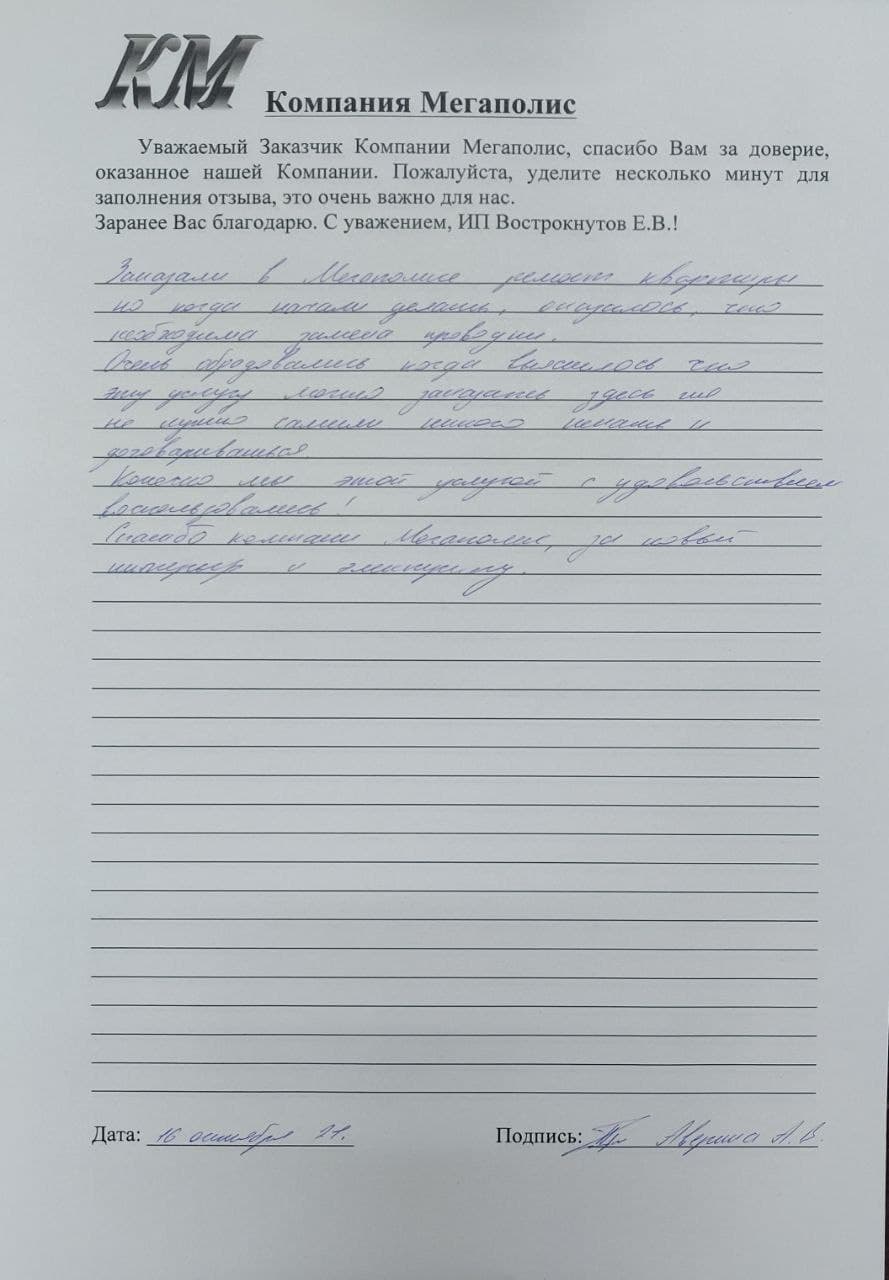 КМ
Компания Мегаполис
Уважаемый Заказчик Компании Мегаполис, спасибо Вам за доверие,
оказанное нашей Компании. Пожалуйста, уделите несколько минут для
заполнения отзыва, это очень важно для нас.
Заранее Вас благодарю. С уважением, ИП Вострокнутов Е.В.!
Заказали в Мегаполисе ремонт квартиры
но когда начали делать, оказалось, что
необходима замена проводки.
Очень обрадовались когда выяснилось что
эту услугу можно заказать здесь же
не нужно самими никого искать и
договариваться.
Конечно мы этой услугой с удовольствием
воспользовались!
Спасибо компании Мегаполис, за новый
интерьер и электрику.
Дата: 16 октября 21г.
Подпись: Аверина А.В.